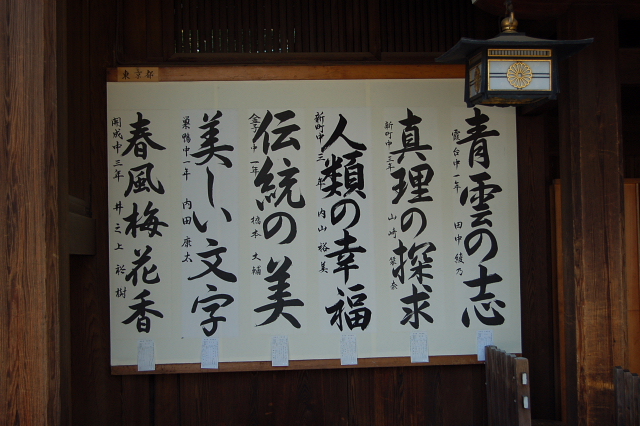 東京都
青雲の志
霞台中一年 田中綾乃
真理の探求
新町中三年 山崎
人類の幸福
新町中三年 内山裕美
伝統の美
金子中一年 橋本大輔
美しい文字
巣鴨中一年 内田康太
春風梅花香
開成中三年 井之上裕樹